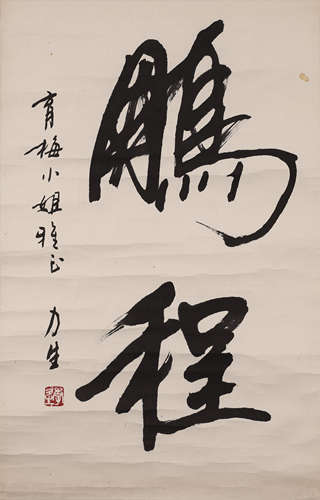 鵬程
育梅小姐雅正
力生